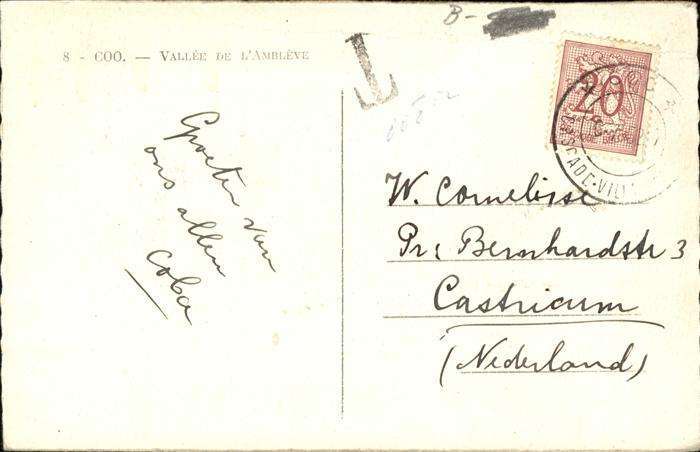 8 - COO. — VALLÉE DE L'AMBLÈVE
B-
T
20
Groeten van
ons allen
Coba
W. Cornelisse
Pr. Bernhardstr 3
Castricum
(Nederland)